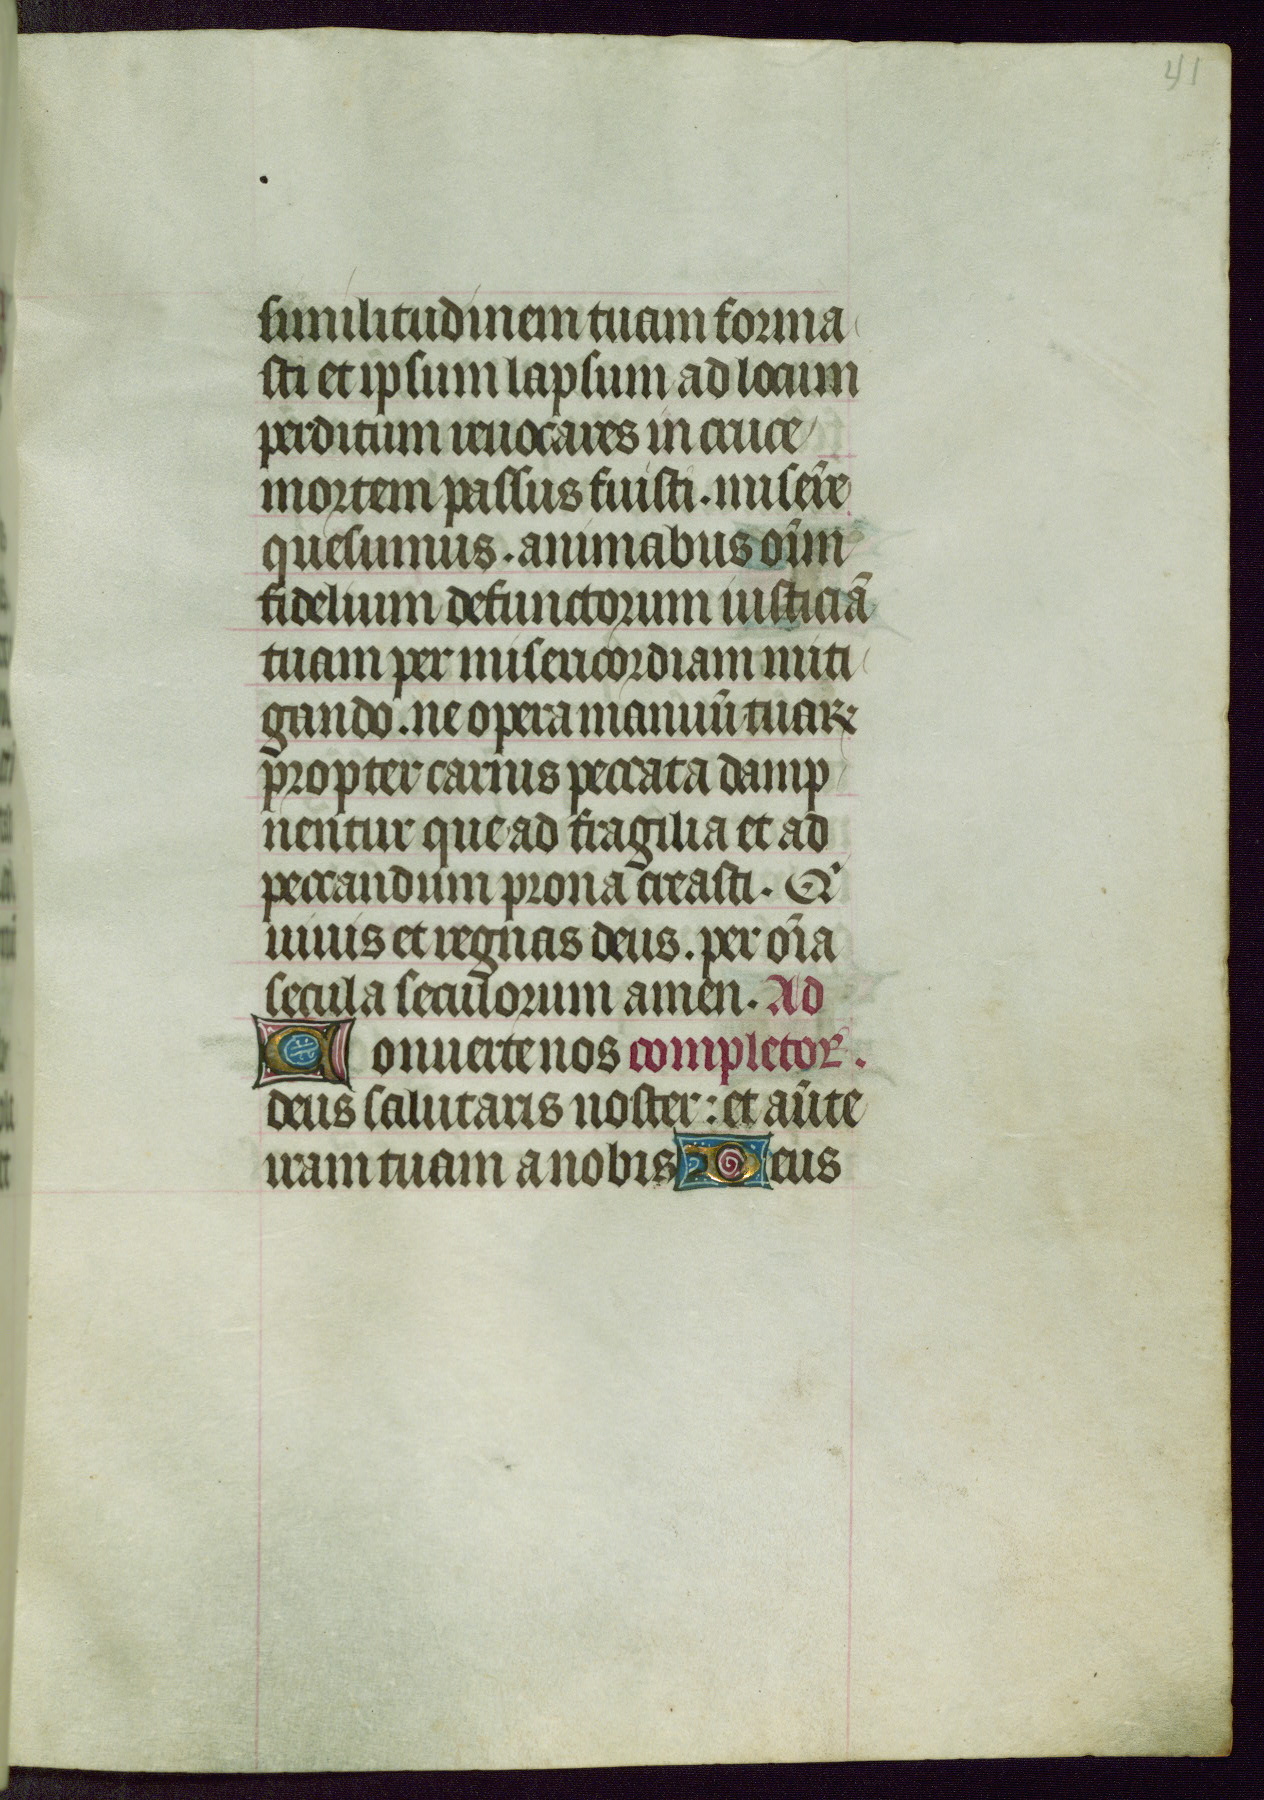 41
similitudinem tuam forma
sti et ipsum lapsum ad locum
perditum reuocares in cruce
mortem passus fuisti. miser̄e
quesumus. animabus oīm
fidelium defunctorum iusticiā
tuam per misericordiam miti
gando. ne opera manuū tuaꝝ
propter carnis peccata damp
nentur que ad fragilia et ad
peccandum prona creasti. Qⁱ
uiuis et regnas deus. per oīa
secula seculorum amen. Ad
Conuerte nos completoꝝ.
deus salutaris noster: et aūte
iram tuam a nobis Deus